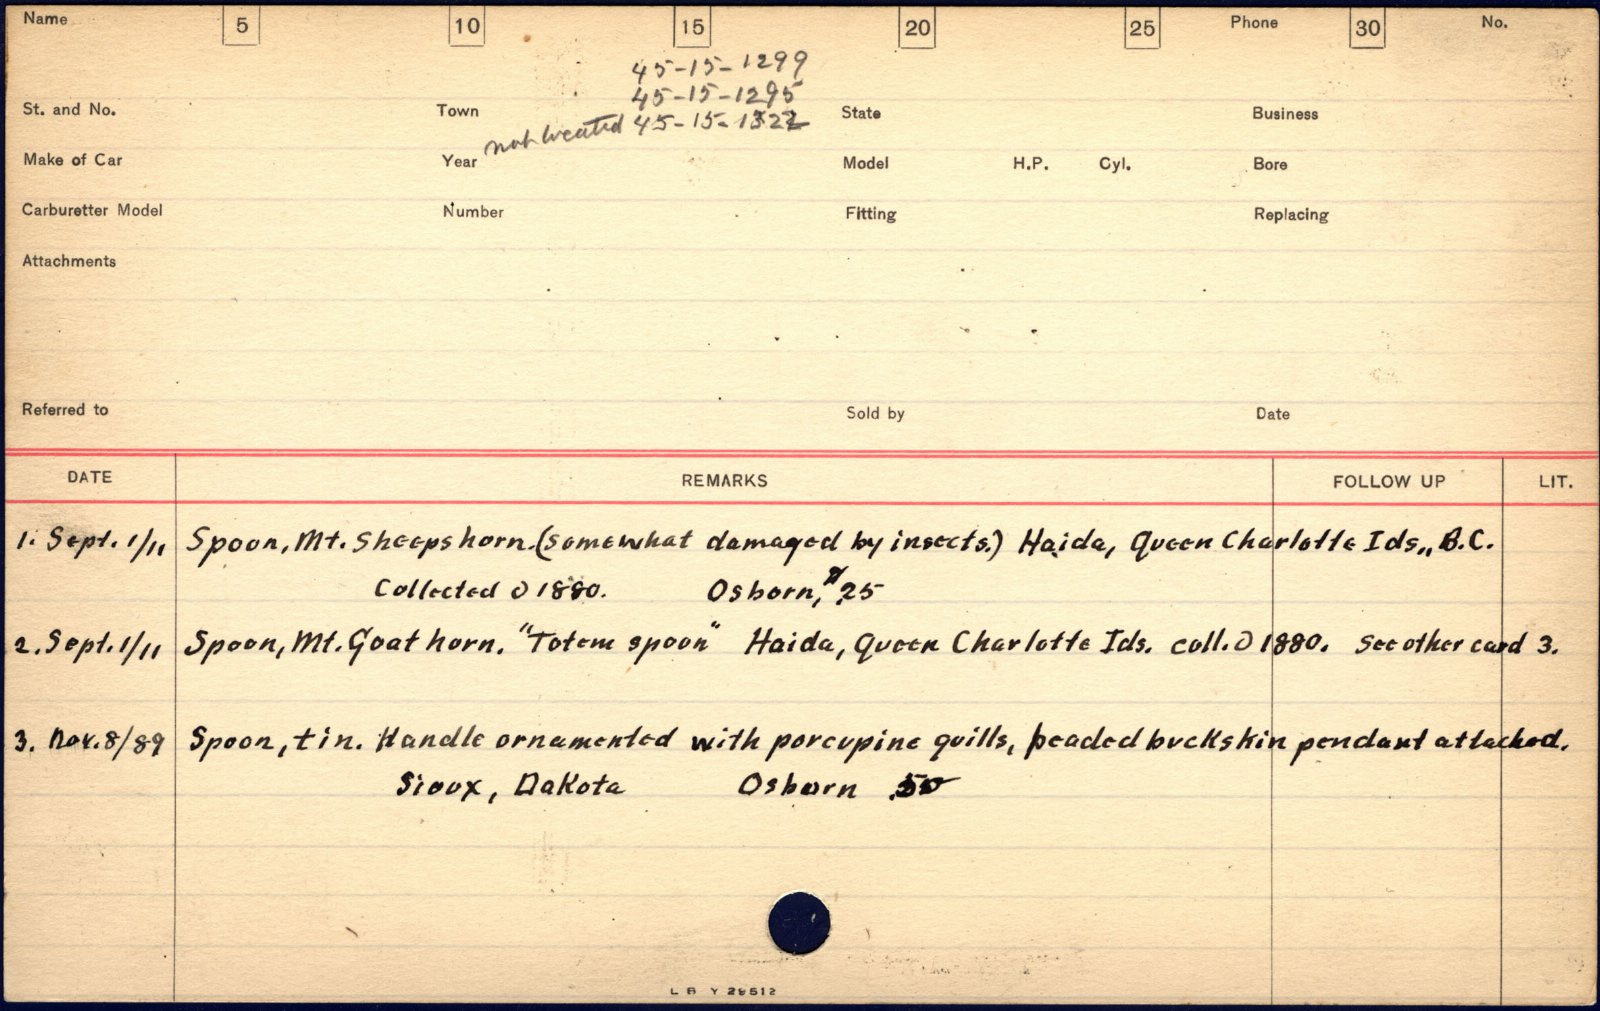 Name 5 10 15 20 25 Phone 30 No.
45-15-1299
45-15-1295
St. and No. Town State Business
not located 45-15-1322
Make of Car Year Model H.P. Cyl. Bore
Carburetter Model Number Fitting Replacing
Attachments
Referred to Sold by Date
DATE REMARKS FOLLOW UP LIT.
1. Sept. 1/11 Spoon, Mt. Sheeps horn. (somewhat damaged by insects.) Haida, Queen Charlotte Ids,, B.C.
Collected 1880. Osborn, 25
2. Sept. 1/11 Spoon, Mt. Goat horn. "Totem spoon" Haida, Queen Charlotte Ids. coll. 1880. See other card 3.
3. Nov. 8/89 Spoon, tin. Handle ornamented with porcupine quills, beaded buckskin pendant attached.
Sioux, Dakota Osborn .50
L B Y 29512